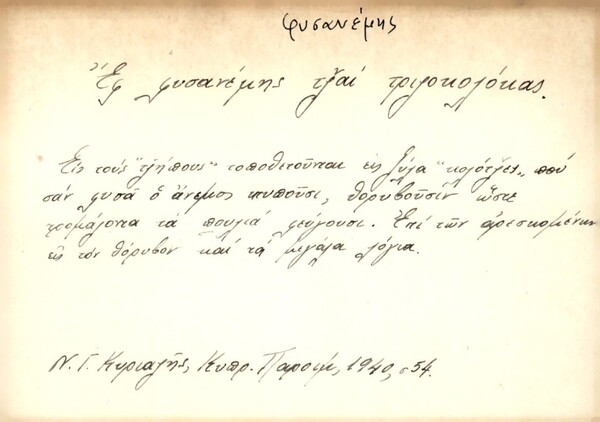 φυσανέμης
Ἔφ φυσανέμης τζ̆αί τριλοκολόκας.
Εἰς τούς "τζ̆ήπους" τοποθετοῦνται εἰς ξύλα "κολότζ̆ες", πού
σάν φυσᾷ ὁ ἄνεμος κτυποῦσι, θορυβοῦσιν ὥστε
τρομάζοντα τά πουλιά φεύγουσι. Ἐπί τῶν ἀρεσκομένων
εἰς τόν θόρυβον καί τά μεγάλα λόγια.
Ν. Γ. Κυριαζῆς, Κυπρ. Παροιμ, 1940, σ 54.